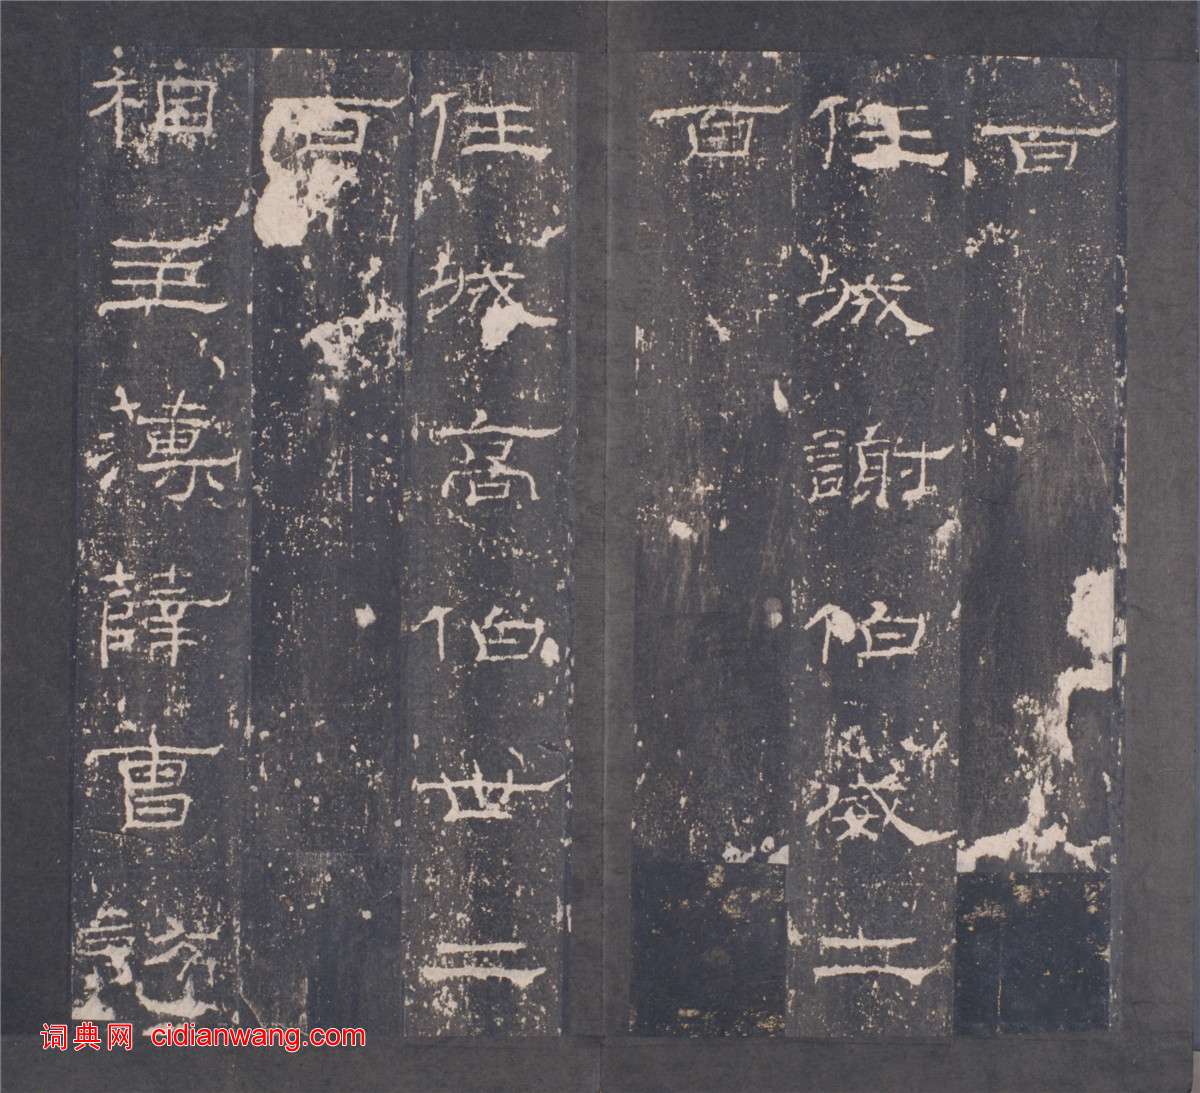 百
任城謝伯威二
百
任城高伯世二
百
相主薄薛曹訪
词典网 cidianwang.com